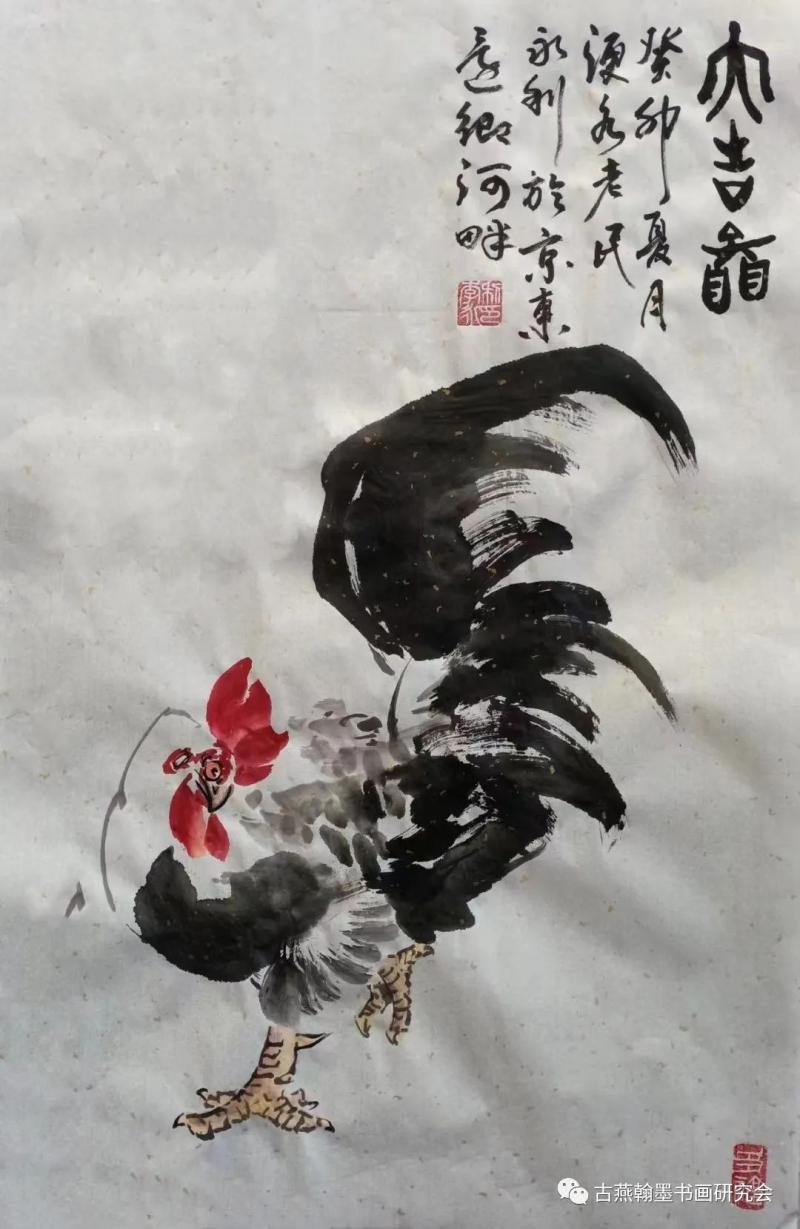 大吉图
癸卯夏月
须水老民
永利於京东
还乡河畔
古燕翰墨书画研究会